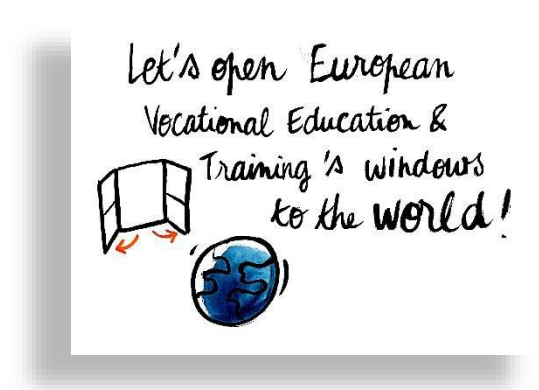 Let's open European
Vocational Education &
Training's windows
to the world!